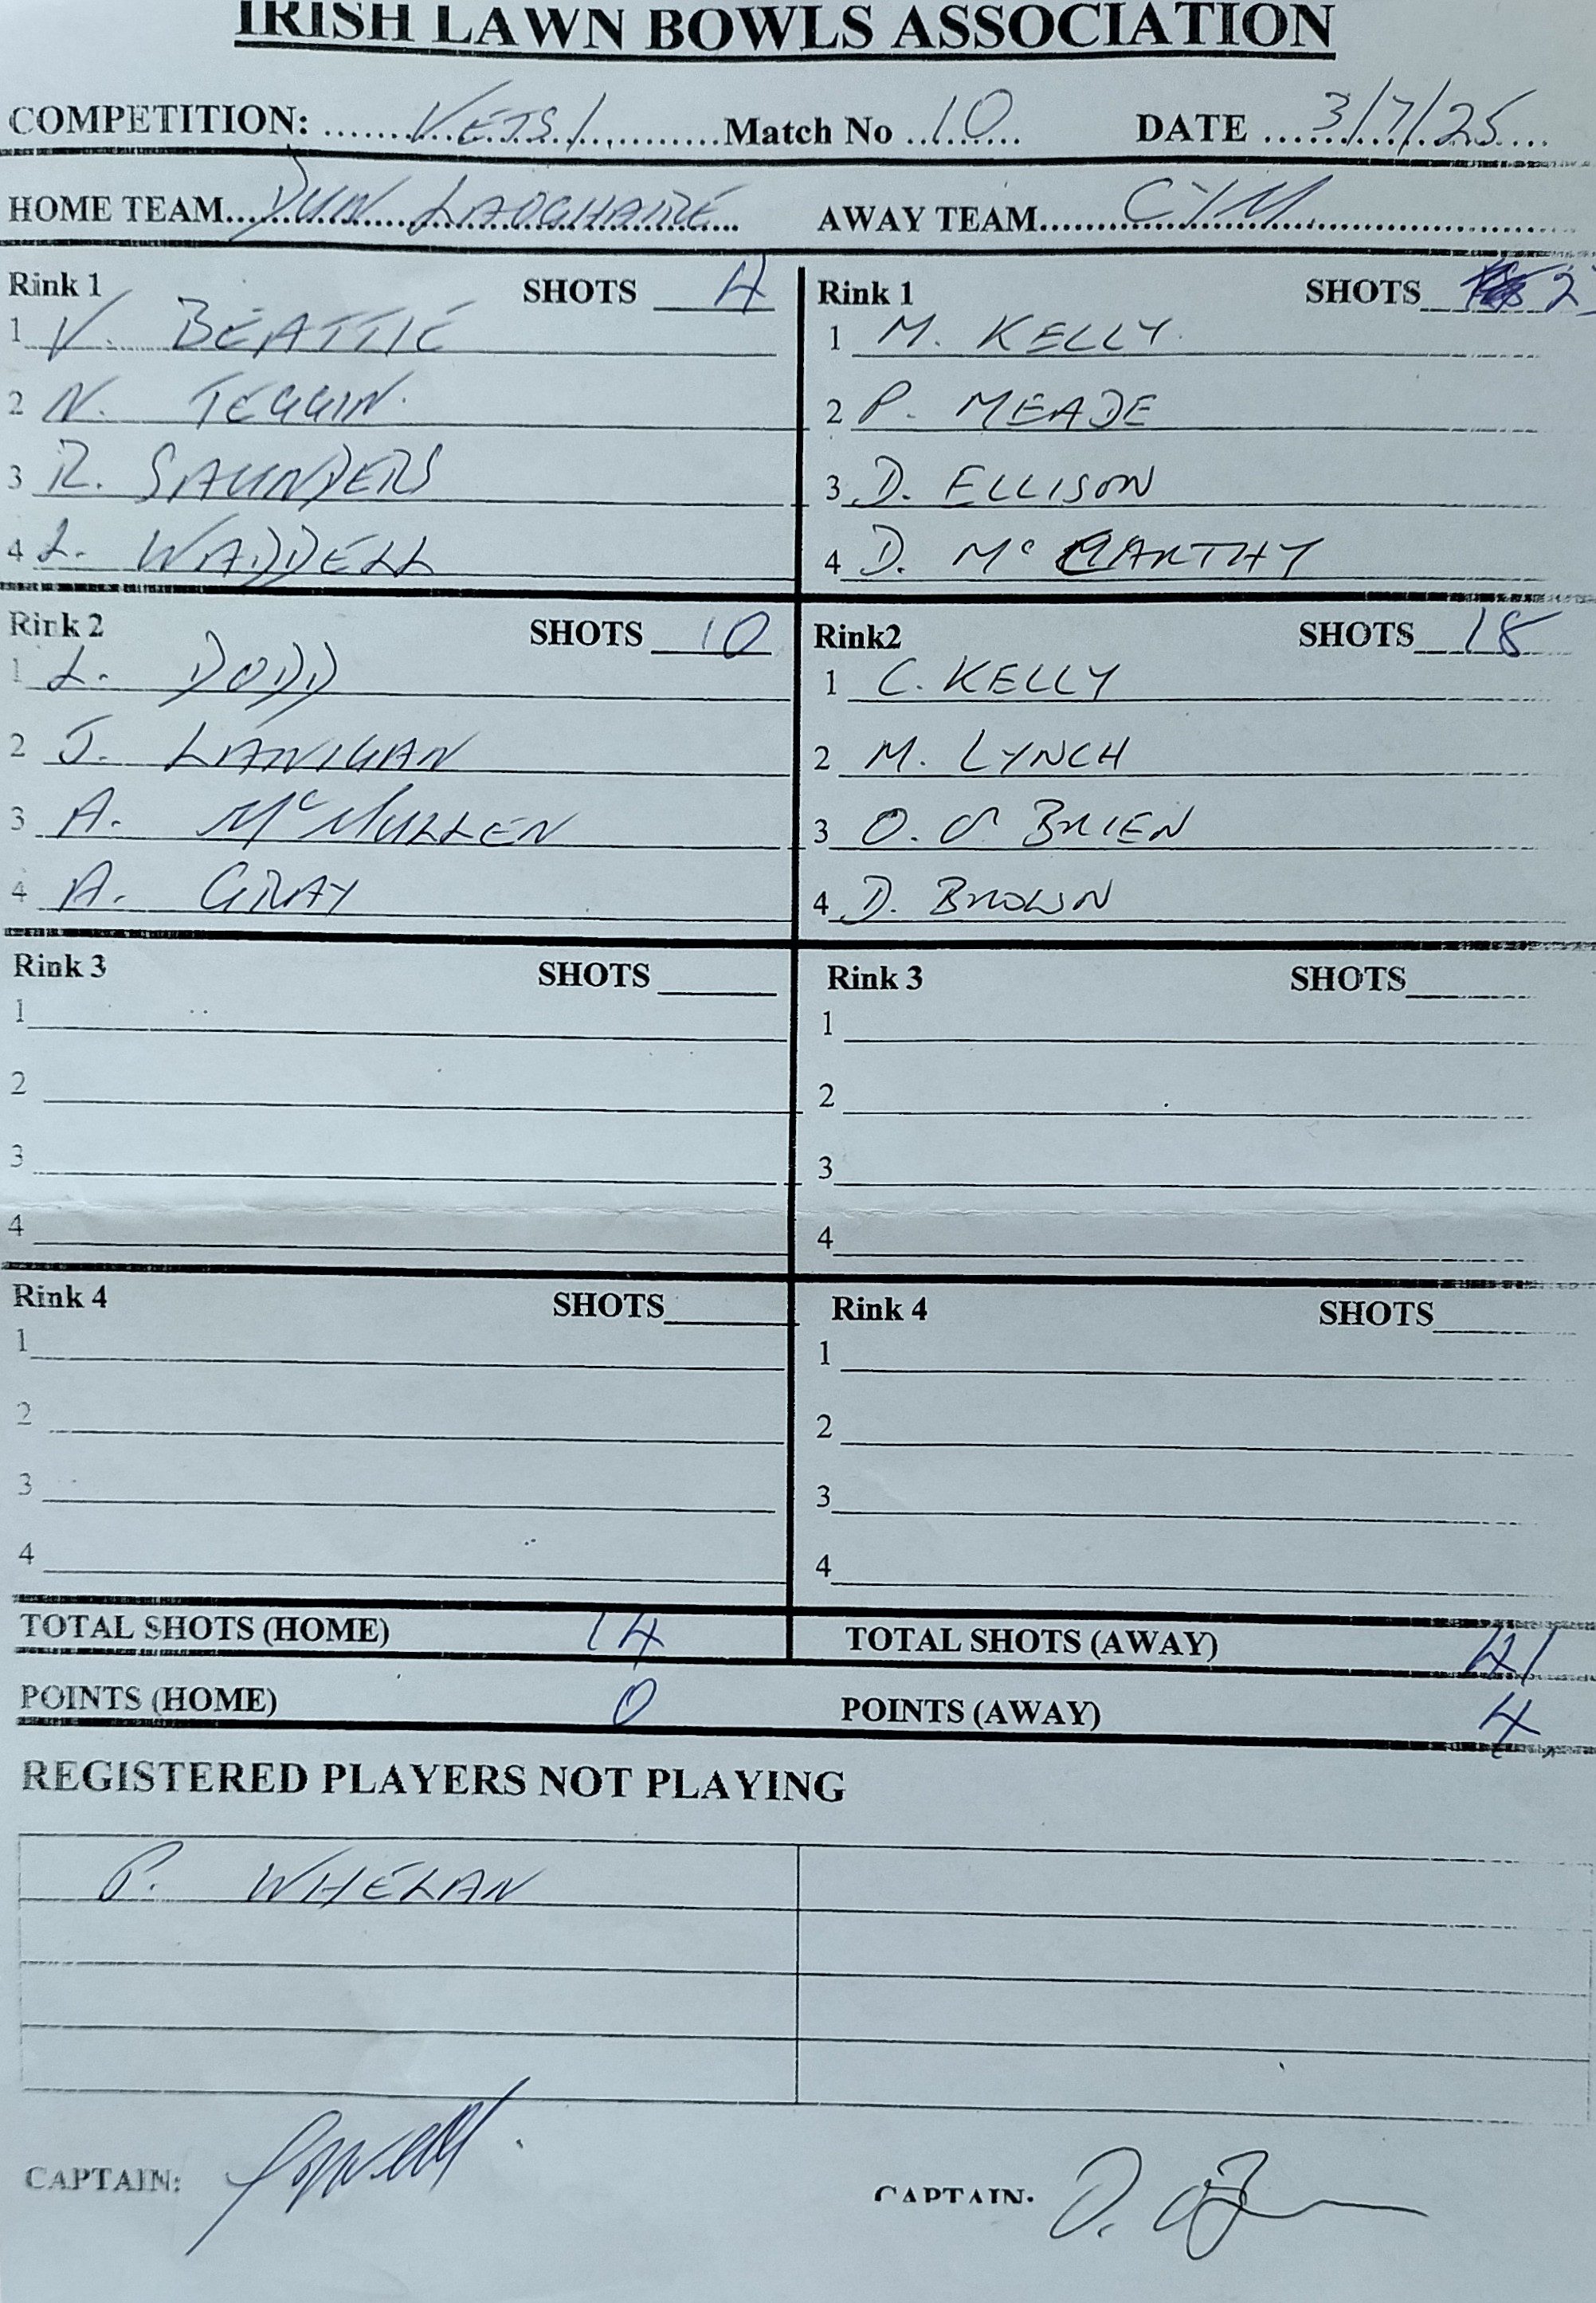 IRISH LAWN BOWLS ASSOCIATION
COMPETITION: VETS 1 Match No 10 DATE 3/7/25
HOME TEAM DUN LAOGHAIRE AWAY TEAM CYM
Rink 1 SHOTS 4
1 V. BEATTIE
2 N. TEGGIN.
3 R. SAUNDERS
4 L. WADDELL
Rink 1 SHOTS 2
1 M. KELLY
2 P. MEADE
3 D. ELLISON
4 D. Mc CARTHY
Rink 2 SHOTS 10
1 L. DODD
2 J. LANIGAN
3 A. McMULLEN
4 A. GRAY
Rink2 SHOTS 18
1 C. KELLY
2 M. LYNCH
3 O. O'BRIEN
4 D. BROWN
Rink 3 SHOTS
1
2
3
4
Rink 3 SHOTS
1
2
3
4
Rink 4 SHOTS
1
2
3
4
Rink 4 SHOTS
1
2
3
4
TOTAL SHOTS (HOME) 14 TOTAL SHOTS (AWAY) 41
POINTS (HOME) 0 POINTS (AWAY) 4
REGISTERED PLAYERS NOT PLAYING
P. WHELAN
CAPTAIN: CAPTAIN: